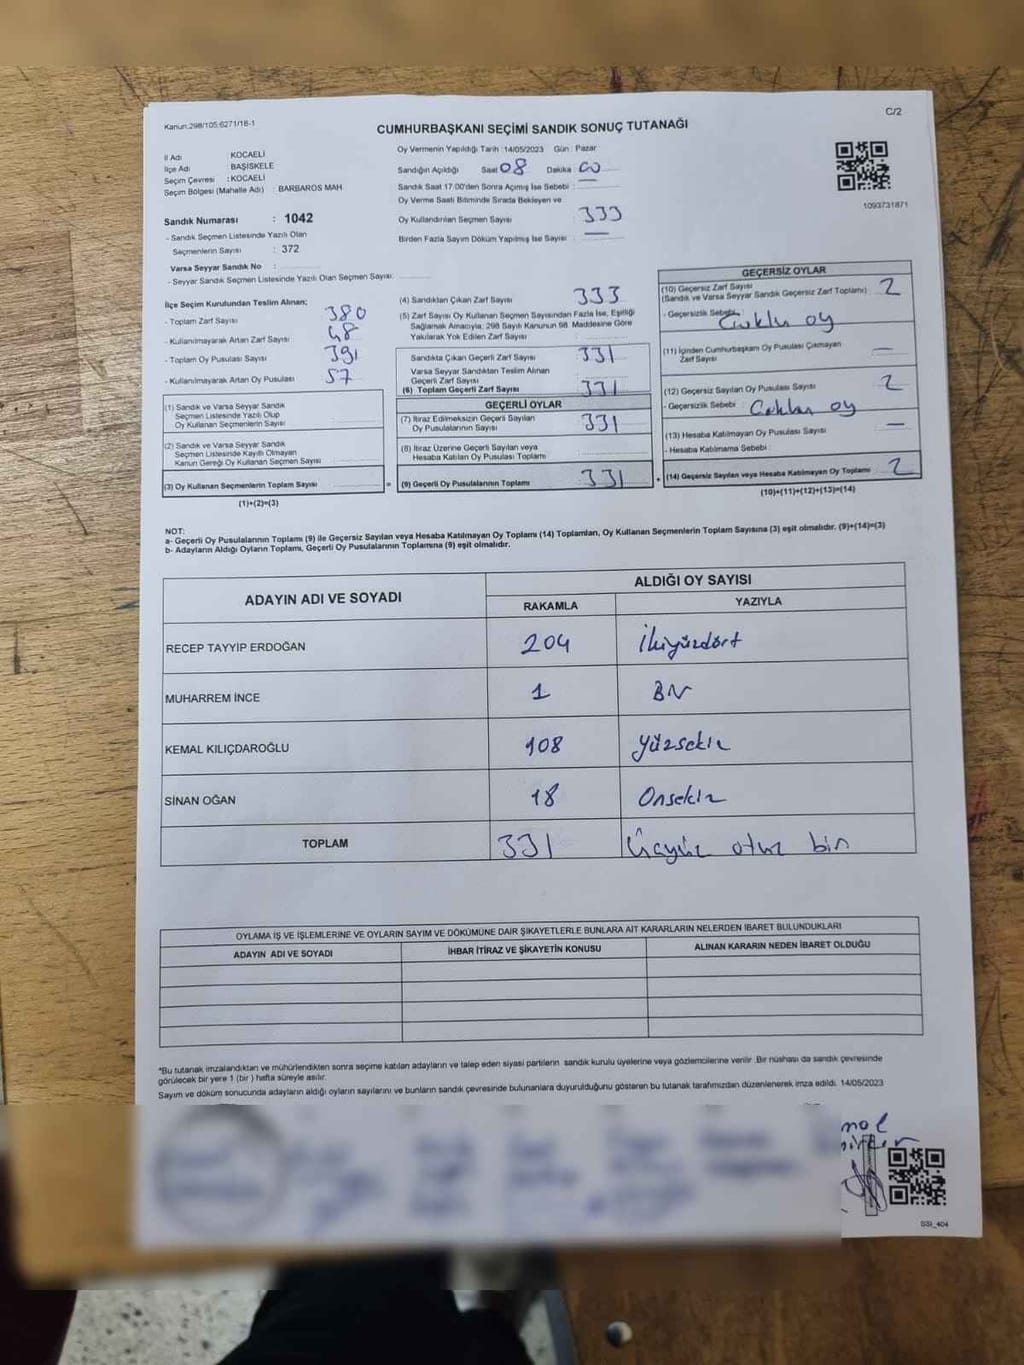 Kanun:298/105;6271/18-1
C/2
CUMHURBAŞKANI SEÇİMİ SANDIK SONUÇ TUTANAĞI
İl Adı : KOCAELİ
İlçe Adı : BAŞİSKELE
Seçim Çevresi : KOCAELİ
Seçim Bölgesi (Mahalle Adı) : BARBAROS MAH
Sandık Numarası : 1042
- Sandık Seçmen Listesinde Yazılı Olan
Seçmenlerin Sayısı : 372
Varsa Seyyar Sandık No :
- Seyyar Sandık Seçmen Listesinde Yazılı Olan Seçmen Sayısı:
Oy Vermenin Yapıldığı Tarih : 14/05/2023 Gün : Pazar
Sandığın Açıldığı Saat 08 Dakika 00
Sandık Saat 17.00'den Sonra Açımış İse Sebebi : —
Oy Verme Saati Bitiminde Sırada Bekleyen ve
Oy Kullandırılan Seçmen Sayısı : 333
Birden Fazla Sayım Döküm Yapılmış İse Sayısı : —
1093731871
İlçe Seçim Kurulundan Teslim Alınan;
- Toplam Zarf Sayısı : 380
- Kullanılmayarak Artan Zarf Sayısı : 48
- Toplam Oy Pusulası Sayısı : 391
- Kullanılmayarak Artan Oy Pusulası : 57
(1) Sandık ve Varsa Seyyar Sandık
Seçmen Listesinde Yazılı Olup
Oy Kullanan Seçmenlerin Sayısı :
(2) Sandık ve Varsa Seyyar Sandık
Seçmen Listesinde Kayıtlı Olmayan
Kanun Gereği Oy Kullanan Seçmen Sayısı :
(3) Oy Kullanan Seçmenlerin Toplam Sayısı :
(1)+(2)=(3)
(4) Sandıktan Çıkan Zarf Sayısı : 333
(5) Zarf Sayısı Oy Kullanan Seçmen Sayısından Fazla İse, Eşitliği
Sağlamak Amacıyla, 298 Sayılı Kanunun 98. Maddesine Göre
Yakılarak Yok Edilen Zarf Sayısı :
Sandıkta Çıkan Geçerli Zarf Sayısı : 331
Varsa Seyyar Sandıktan Teslim Alınan
Geçerli Zarf Sayısı :
(6) Toplam Geçerli Zarf Sayısı : 331
GEÇERLİ OYLAR
(7) İtiraz Edilmeksizin Geçerli Sayılan
Oy Pusulalarının Sayısı : 331
(8) İtiraz Üzerine Geçerli Sayılan veya
Hesaba Katılan Oy Pusulası Toplamı :
(9) Geçerli Oy Pusulalarının Toplamı : 331
GEÇERSİZ OYLAR
(10) Geçersiz Zarf Sayısı
(Sandık ve Varsa Seyyar Sandık Geçersiz Zarf Toplamı) : 2
- Geçersizlik Sebebi : oy
(11) İçinden Cumhurbaşkanı Oy Pusulası Çıkmayan
Zarf Sayısı : —
(12) Geçersiz Sayılan Oy Pusulası Sayısı : 2
- Geçersizlik Sebebi : oy
(13) Hesaba Katılmayan Oy Pusulası Sayısı : —
- Hesaba Katılmama Sebebi :
(14) Geçersiz Sayılan veya Hesaba Katılmayan Oy Toplamı : 2
(10)+(11)+(12)+(13)=(14)
NOT:
a- Geçerli Oy Pusulalarının Toplamı (9) ile Geçersiz Sayılan veya Hesaba Katılmayan Oy Toplamı (14) Toplamları, Oy Kullanan Seçmenlerin Toplam Sayısına (3) eşit olmalıdır. (9)+(14)=(3)
b- Adayların Aldığı Oyların Toplamı, Geçerli Oy Pusulalarının Toplamına (9) eşit olmalıdır.
ADAYIN ADI VE SOYADI
ALDIĞI OY SAYISI
RAKAMLA YAZIYLA
RECEP TAYYİP ERDOĞAN 204 İkiyüzdört
MUHARREM İNCE 1 Bir
KEMAL KILIÇDAROĞLU 108 Yüzsekiz
SİNAN OĞAN 18 Onsekiz
TOPLAM 331 Üçyüz otuz bir
OYLAMA İŞ VE İŞLEMLERİNE VE OYLARIN SAYIM VE DÖKÜMÜNE DAİR ŞİKAYETLERLE BUNLARA AİT KARARLARIN NELERDEN İBARET BULUNDUKLARI
ADAYIN ADI VE SOYADI İHBAR İTİRAZ VE ŞİKAYETİN KONUSU ALINAN KARARIN NEDEN İBARET OLDUĞU
*Bu tutanak imzalandıktan ve mühürlendikten sonra seçime katılan adayların ve talep eden siyasi partilerin sandık kurulu üyelerine veya gözlemcilerine verilir. Bir nüshası da sandık çevresinde
görülecek bir yere 1 (bir) hafta süreyle asılır.
Sayım ve döküm sonucunda adayların aldığı oyların sayılarını ve bunların sandık çevresinde bulunanlara duyurulduğunu gösteren bu tutanak tarafımızdan düzenlenerek imza edildi. 14/05/2023
SSI_404